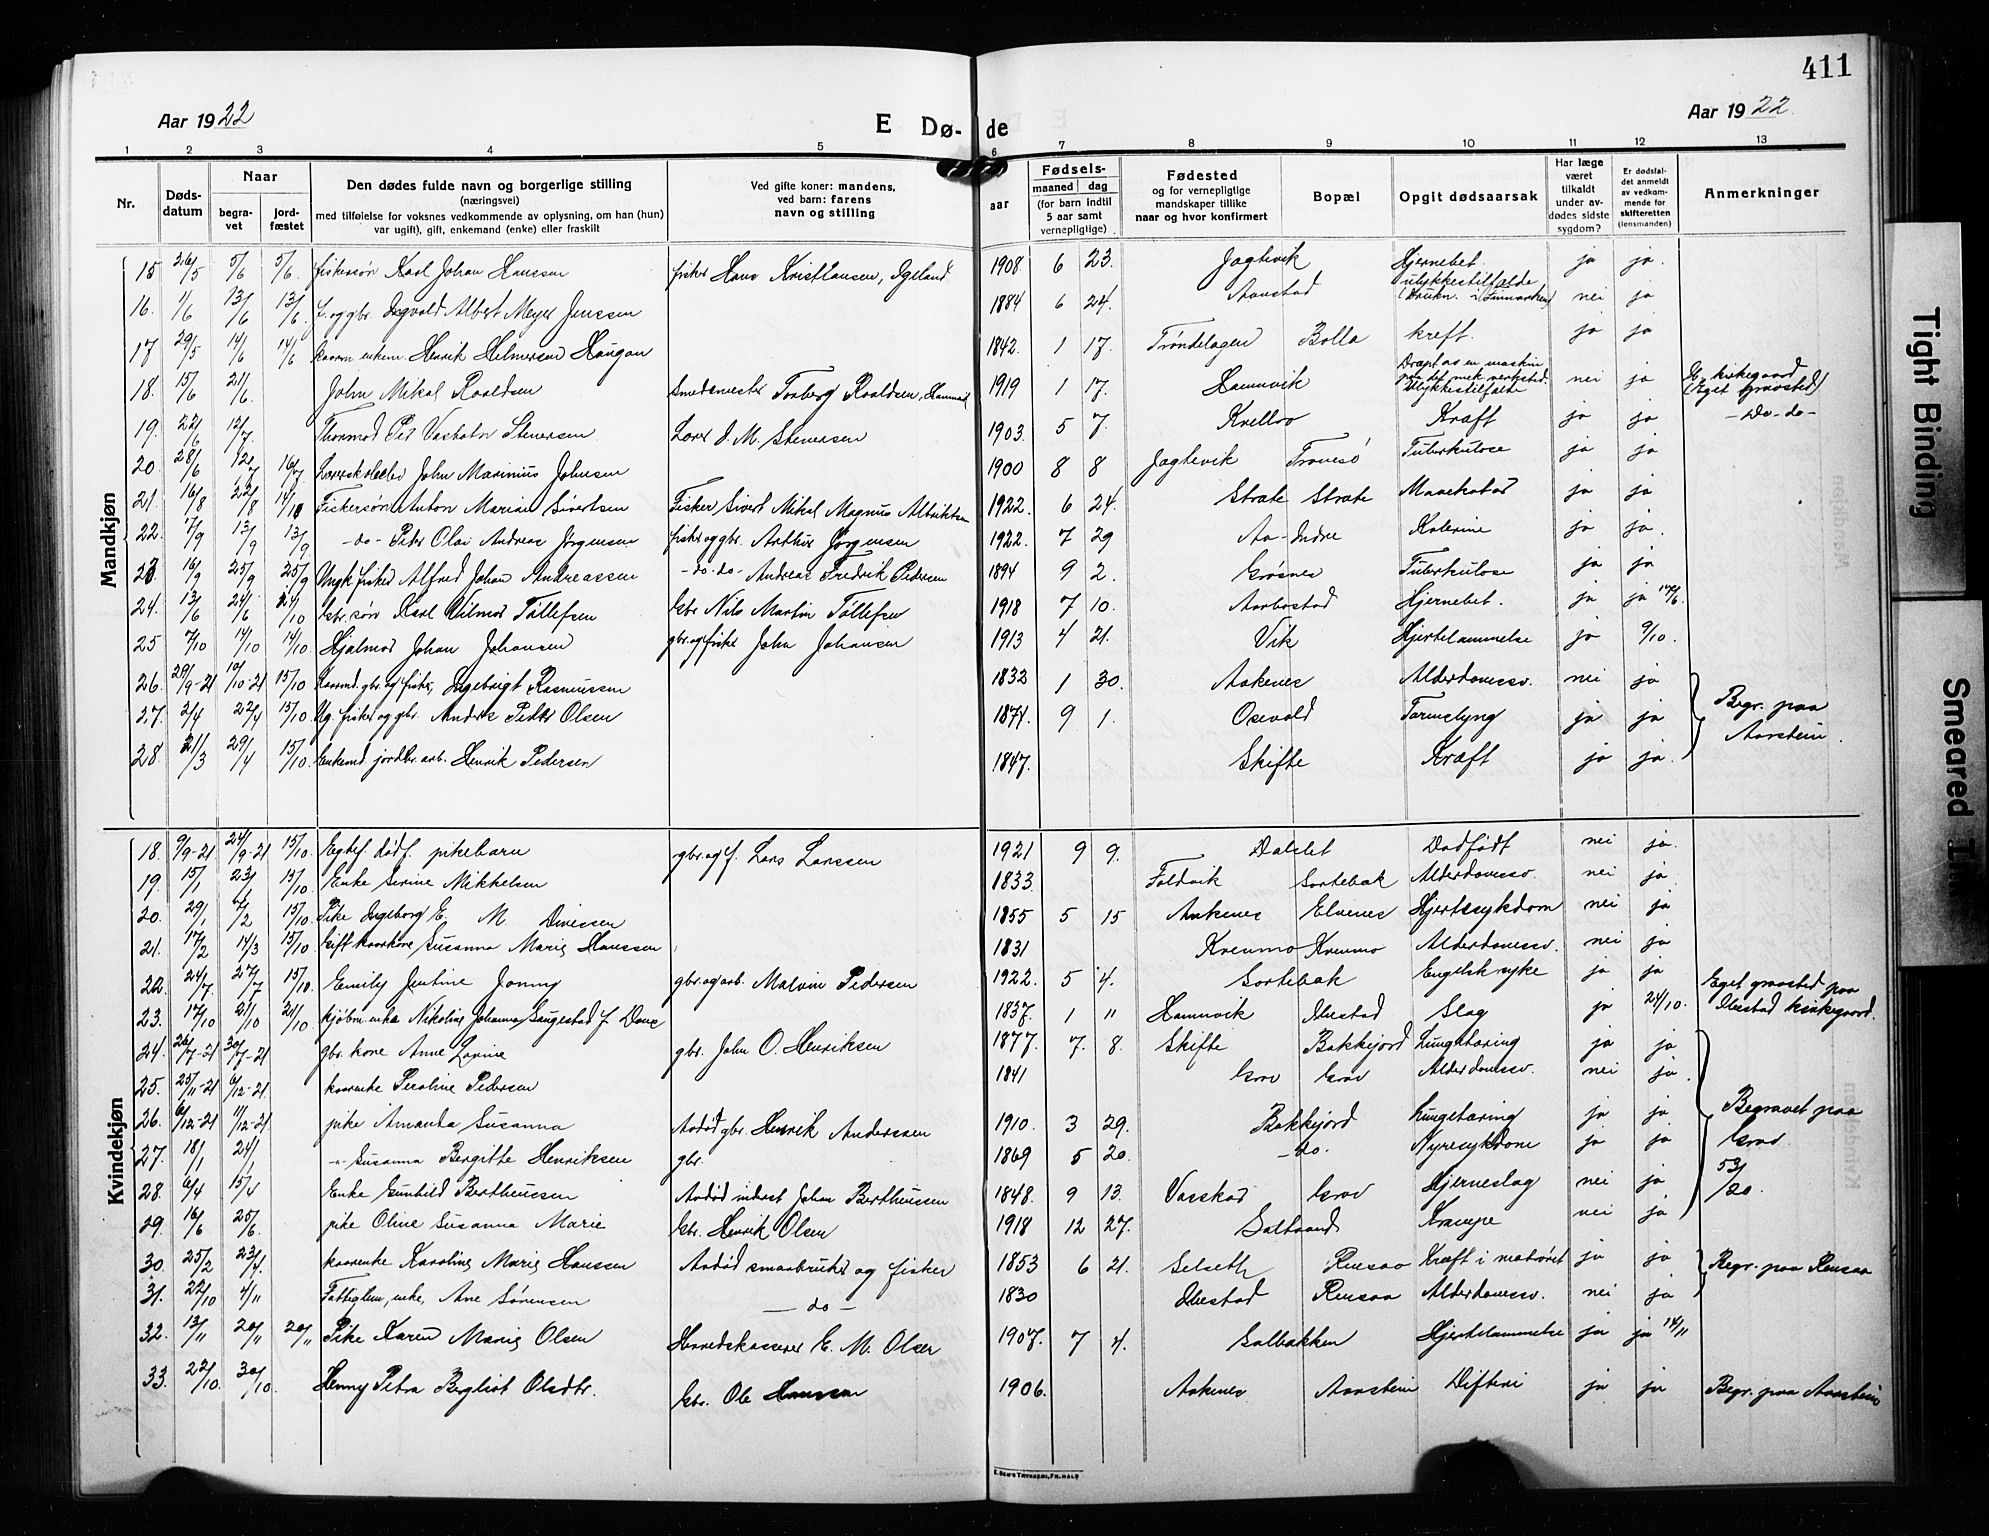 411
Aar 1922
E Dø-de
Aar 1922.
1 2 3 4 5 6 7 8 9 10 11 12 13
Nr.
Døds-datum
Naar
begra-vet
jord-fæstet
Den dødes fulde navn og borgerlige stilling
(næringsvei)
med tilføielse for voksnes vedkommende av oplysning, om han (hun)
var ugift), gift, enkemand (enke) eller fraskilt
Ved gifte koner: mandens,
ved barn: farens
navn og stilling
Fødsels-
aar
maaned dag
(for barn indtil
5 aar samt
vernepligtige)
Fødested
og for vernepligtige
mandskaper tillike
naar og hvor konfirmert
Bopæl
Opgit dødsaarsak
Har læge
været
tilkaldt
under av-
dødes sidste
sygdom?
Er dødsfal-
det anmeldt
av vedkom-
mende for
skifteretten
(lensmanden)
Anmerkninger
Mandkjøn
15 26/5 5/6 5/6. fiskersøn Karl Johan Hanssen fisker Hans Kristiansen, Igeland. 1908. 6 23. Jagtevik Hjernebet. ja ja.
16. 1/6 13/6 13/6. F. og gbr. Ingvald Albert Meyer Jenssen 1884 6 24. Aanstad Ulykkestilfælde (Drukn. i Finmarken) nei ja
17 29/5 14/6 14/6 kaarm. enkem. Henrik Helmersen Haugan 1842. 1 17. Trøndelagen Bolla kreft. ja ja
18. 15/6 21/6. John Mikal Roaldsen Smedmester Torberg Roaldsen, Hamnvik 1919 1 17. Hamnvik Dræpt av en maskin paa det mek. verksted. Ulykkestilfælde nei ja kirkegaard (Eget gravsted)
19. 22/6 12/7. Thormod Per Stenersen Lærer J. M. Stenersen 1903. 5 7. Kræft ja ja - Do - do -
20. 28/6 12/7 16/7 Lærerskoleelev John Maximus Johnsen 1900 8 8 Jagtevik Tromsø Tuberkulose ja ja
21. 16/8 22/8 Fiskersøn Anton Marian Sivertsen Fisker Sivert Mikal Magnus Albriktsen 1922. 6 24. Strate Strate Mavekatar ja ja
22. 7/9 13/9 13/9. - do - Peder Olai Andreas Jørgensen fisker og gbr. Arthur Jørgensen 1922. 7 29 Aa - Indre Kolerine ja ja.
23. 16/9 25/9 25/9 Ungk. fisker Alfred Johan Andreassen - do. do - Andreas Fredrik Pedersen 1894 9 2. Grøsnes Tuberkulose ja ja
24. 13/6 24/6 24/10 Gbr. søn Karl Vilmar Tøllefsen Gbr Nils Martin Tøllefsen 1918 7 10. Aarbostad Hjernebet. ja ja 17/6.
25 7/10 14/10 14/10. Hjalmar Johan Johansen gbr. og fisker John Johansen 1913 4 21. Vik Hjertelammelse ja 9/10.
26. 28/9-21 10/10-21 15/10. Kaarmd. gbr. og fisker, Ingebrigt Rasmussen 1832 1 30. Aakenes Alderdomssv. nei ja
27. 2/4 22/4 15/10. Ug. fisker og gbr. Anders Peder Olsen 1871. 9 1. Osevold Tarmslyng ja ja Begr. paa Aarstein.
28. 21/3 29/4 15/10. Enkemd. jordbr. arb. Henrik Pedersen 1847. Skifte Kræft ja ja.
Kvindekjøn
18. 9/9-21 24/9-21 15/10. Egtef. dødf. pikebarn gbr. og f. Lars Larssen 1921 9 9. Dalslet Dødfødt nei ja.
19. 15/1 23/1 15/10. Enke Serine Mikkelsen 1833. Foldvik Sortebak Alderdomssv. nei ja
20. 29/1 6/2 15/10. Pike Ingeborg E. M. Dinessen 1855 5 15 Aakenes Elvenes Hjertesykdom nei ja
21. 17/2 14/3 15/10. Gift kaarkone Susanna Marie Hanssen 1831 Kvenmo Kvenmo Alderdomssv. nei ja
22. 24/7. 27/7 15/10. Emily Jentine Jonny gbr. og arb. Malvin Pedersen 1922. 5 4. Sortebak Engelsk syke ja ja
23. 17/10 21/10 21/10. kjøbm. enke Nikoline Johanna Saugestad f. Done 1837. 1 " Hamnvik Ibestad Slag ja 24/10. Eget gravsted paa Ibestad kirkegaard.
24. 26/7-21 30/7-21 gbr. kone Anne Lorine gbr. John O. Henriksen 1877. 7. 8. Skifte Bakkejord Lungetæring ja ja
25. 25/11-21 6/12-21. kaarenke Peroline Pedersen 1841 Grov Grov Alderdomssv. nei ja.
26. 6/12-21 11/12-21 pike Amanda Susanna Avdød gbr. Henrik Anderssen 1910. 3 29. Bakkejord Lungetæring ja ja Begravet paa Grov
27. 18/1 24/1 - " - Susanna Bergitte Henriksen gbr. 1869 5 20. - do. Nyresykdom ja ja
28. 6/4 15/4 Enke Gunhild Bertheussen Avdød inderst Johan Bertheussen 1848. 9 13. Vasskar Grov Hjerneslag nei ja 53/20.
29. 16/6 25/6. pike Oline Susanna Marie Gbr. Henrik Olsen 1918 12 27. Saltvand Krampe nei ja
30. 25/2 23/4. kaarenke Karoline Marie Hanssen Avdød smaabruker og fisker 1853 6 21. Selseth Rensaa Kræft i matrøret ja ja Begr. paa Rensaa
31. 22/10 4/11 Fattiglem, enke, Ane Sørensen - do - 1830 Ibestad Rensaa Alderdomssv. nei ja
32. 13/11 20/11 20/11 Pike Karen Marie Olsen Herredskasserer E. M. Olsen 1907. 7 4. Solbakken Hjertelammelse ja ja 14/11
33. 22/10. 30/10. Henny Petra Bergliot Olsdtr. Gbr. Ole Hanssen 1906. Aakenes Aarstein Difteri ja ja Begr. paa Aarstein
E. SEM'S TRYKKERI, FR.HALD
Tight Binding
Smeared Ink